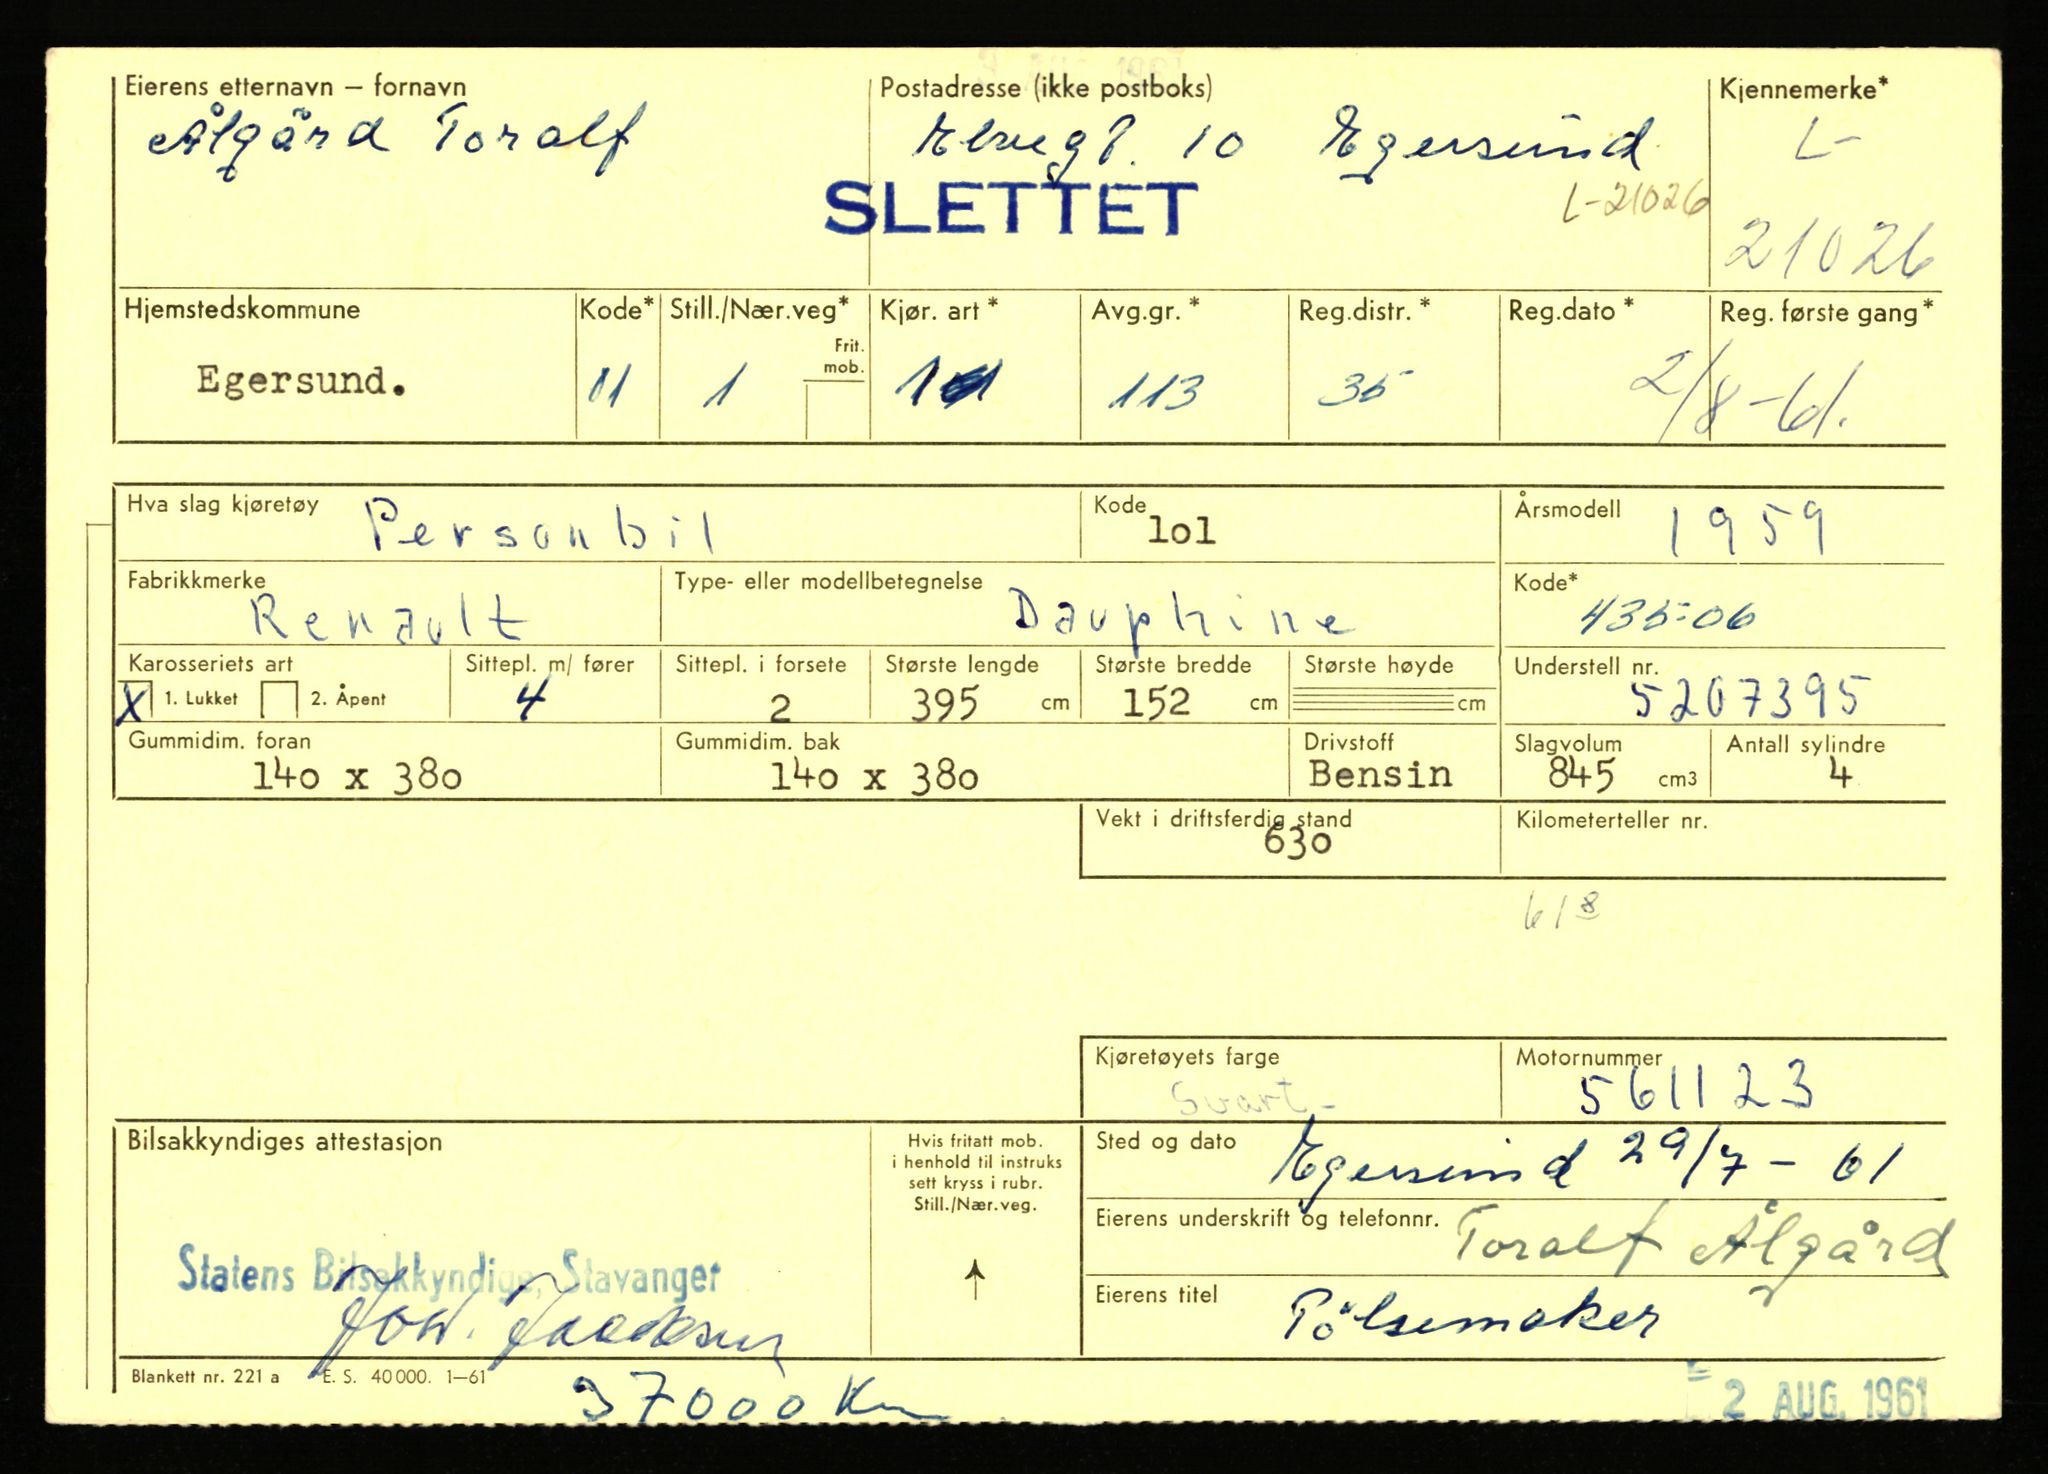 Eierens etternavn – fornavn
Postadresse (ikke postboks)
Kjennemerke*
Ålgård Toralf
10 Egersund
L-
SLETTET
L-21026
21026
Hjemstedskommune
Kode*
Still./Nær.veg*
Kjør. art *
Avg.gr. *
Reg.distr. *
Reg.dato *
Reg. første gang*
Frit. mob.
Egersund.
01
1
113
35
2/8-61.
Hva slag kjøretøy
Personbil
Kode
lol
Årsmodell
1959
Fabrikkmerke
Renault
Type- eller modellbetegnelse
Dauphine
Kode*
435-06
Karosseriets art
Sittepl. m/ fører
Sittepl. i forsete
Største lengde
Største bredde
Største høyde
Understell nr.
X 1. Lukket
2. Åpent
4
2
395 cm
152 cm
cm
5207395
Gummidim. foran
Gummidim. bak
Drivstoff
Slagvolum
Antall sylindre
140 x 380
140 x 380
Bensin
845 cm3
4
Vekt i driftsferdig stand
Kilometerteller nr.
630
61 8
Kjøretøyets farge
Motornummer
Svart-
561123
Bilsakkyndiges attestasjon
Hvis fritatt mob.
i henhold til instruks
sett kryss i rubr.
Still./Nær.veg.
Sted og dato
Egersund 29/7 - 61
Eierens underskrift og telefonnr.
Toralf Ålgård
Statens Bilsakkyndige, Stavanger
Eierens titel
Pölsemaker
Blankett nr. 221 a
E. S. 40 000. 1–61
37000 Km
2 AUG. 1961